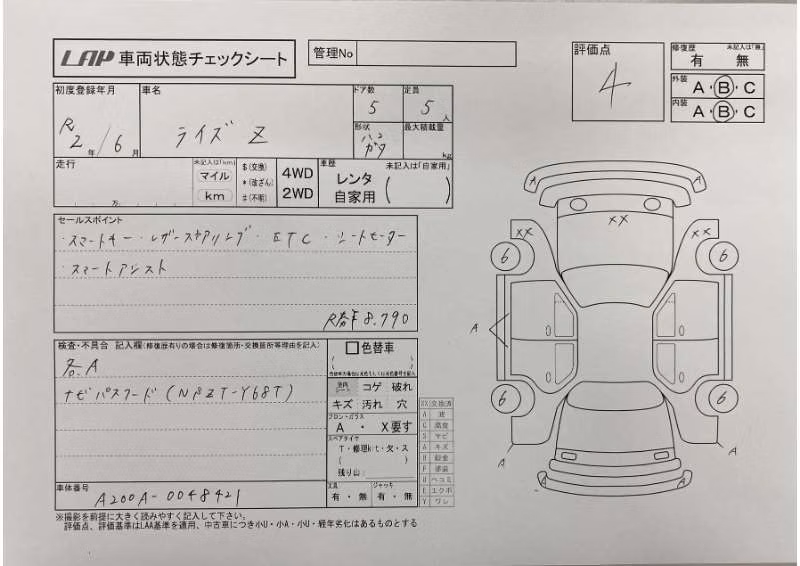 LAP 車両状態チェックシート
管理No
評価点
4
修復歴 未記入は「無」
有 無
外装
A・B・C
内装
A・B・C
初度登録年月
R2年/6月
車名
ライズ Z
ドア数
5
定員
5人
形状
ハコ
ガタ
最大積載量
kg
走行
万
未記入は「km」
マイル
km
$(交換)
*(改ざん)
#(不明)
4WD
2WD
車歴 未記入は「自家用」
レンタ
自家用
セールスポイント
・スマートキー・レザーステアリング・ETC・シートヒーター
・スマートアシスト
8.790
検査・不具合 記入欄(修復歴有りの場合は修復箇所・交換箇所等理由を記入)
各A
ナビパスワード(N8ZT-Y68T)
色替車
コゲ 破れ
キズ 汚れ 穴
フロントガラス
A ・ X要す
スペアタイヤ
T・修理kit・欠・ス
残り山:
工具
有・無
ジャッキ
有・無
XX 交換済
A 波
C 腐食
S サビ
A キズ
B 鈑金
P 塗装
U ヘコミ
E エクボ
Y ワレ
車体番号
A200A-0048421
※撮影を前提に大きく読みやすく記入して下さい。
評価点、評価基準はLAA基準を適用、中古車につき小U・小A・小U・経年劣化はあるものとする
A
A
XX
XX
XX
6
6
A
6
6
A
A
A
A